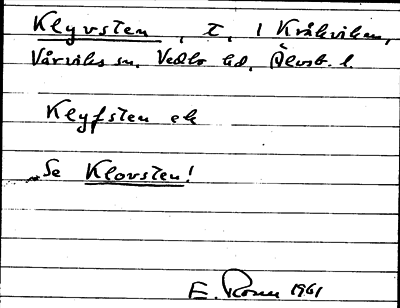 Klyvsten, t. i Kråkviken,
Vårviks sn. Vedbo hd. Älvsb. l.
Klyfsten ek
Se Klovsten!
E. Rosen 1961